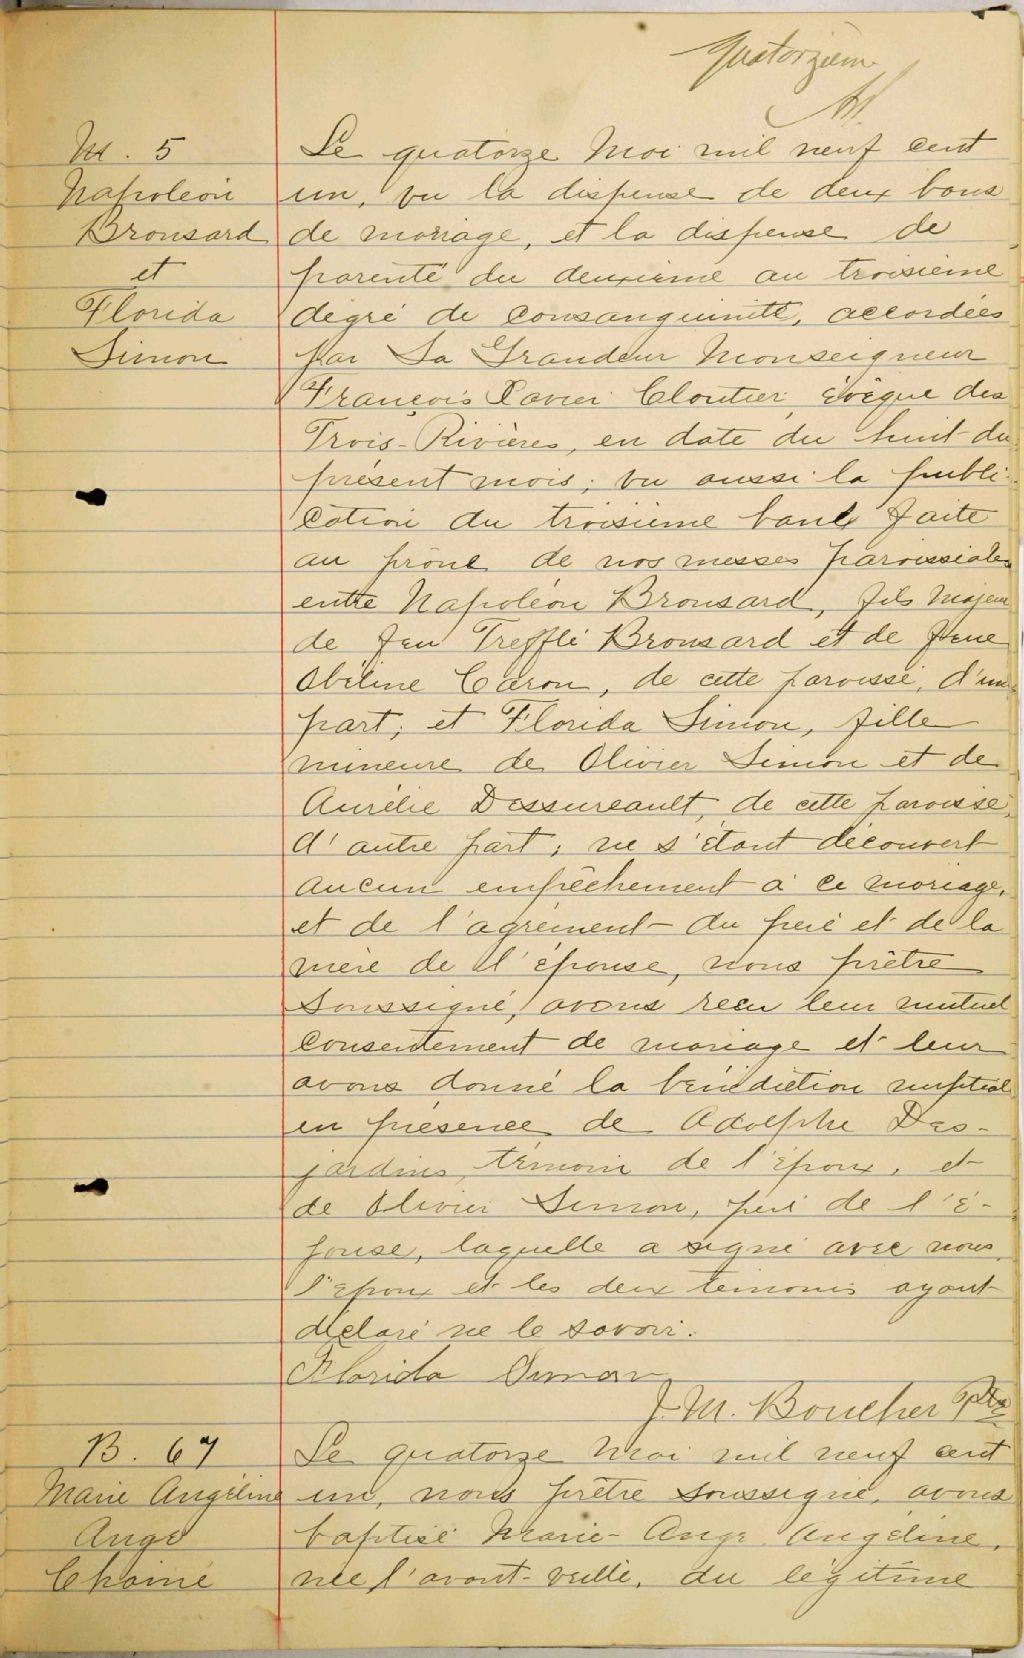 quatorzième
M. 5
Napoléon
Bronsard
et
Florida
Simon
Le quatorze Mai mil neuf cent
un, vu la dispense de deux bans
de mariage, et la dispense de
parenté du deuxième au troisième
degré de consanguinité, accordées
par Sa Grandeur Monseigneur
François Xavier Cloutier, évêque des
Trois-Rivières, en date du huit du
présent mois; vu aussi la publi-
cation du troisième banc faite
au prône de nos messes paroissiales
entre Napoléon Bronsard, fils majeur
de feu Trefflé Bronsard et de feue
Obéline Caron, de cette paroisse, d'une
part; et Florida Simon, fille
mineure de Olivier Simon et de
Aurélie Dessureault, de cette paroisse,
d'autre part; ne s'étant découvert
aucun empêchement à ce mariage,
et de l'agrément du père et de la
mère de l'épouse, nous prêtre
soussigné, avons reçu leur mutuel
consentement de mariage et leur
avons donné la bénédiction nuptiale
en présence de Adolphe Des-
jardins, témoin de l'époux, et
de Olivier Simon, père de l'é-
pouse, laquelle a signé avec nous,
l'époux et les deux témoins ayant
déclaré ne le savoir.
Florida Simon
J. M. Boucher Ptre
B. 67
Marie Angéline
Ange
Chainé
Le quatorze Mai mil neuf cent
un, nous prêtre soussigné, avons
baptisé Marie-Ange Angéline,
née l'avant-veille, du légitime